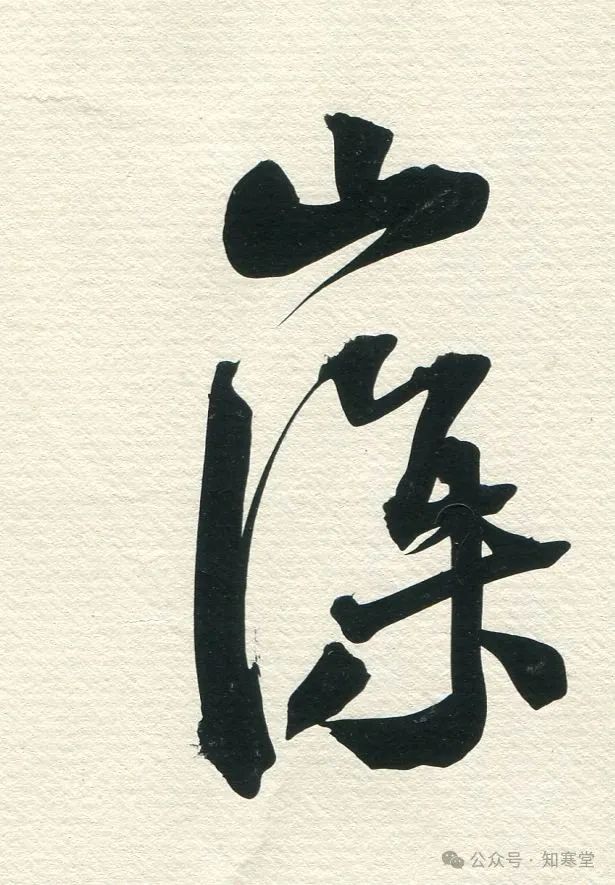 山
深
公众号 · 知寒堂